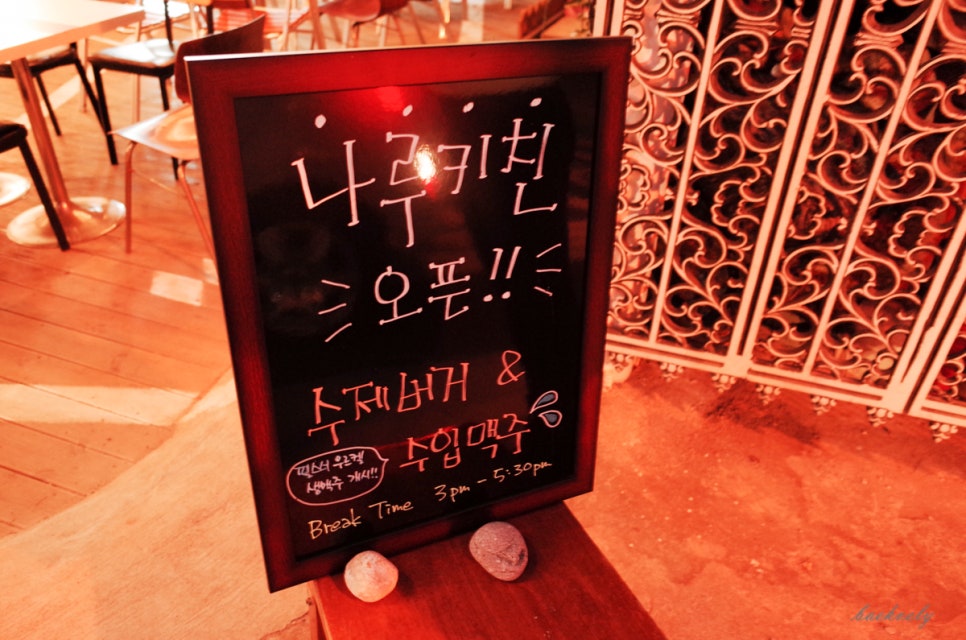 나루키친
오픈!!
수제버거 &
수입맥주
필스너 우르켈
생맥주 개시!!
Break Time 3pm - 5:30pm